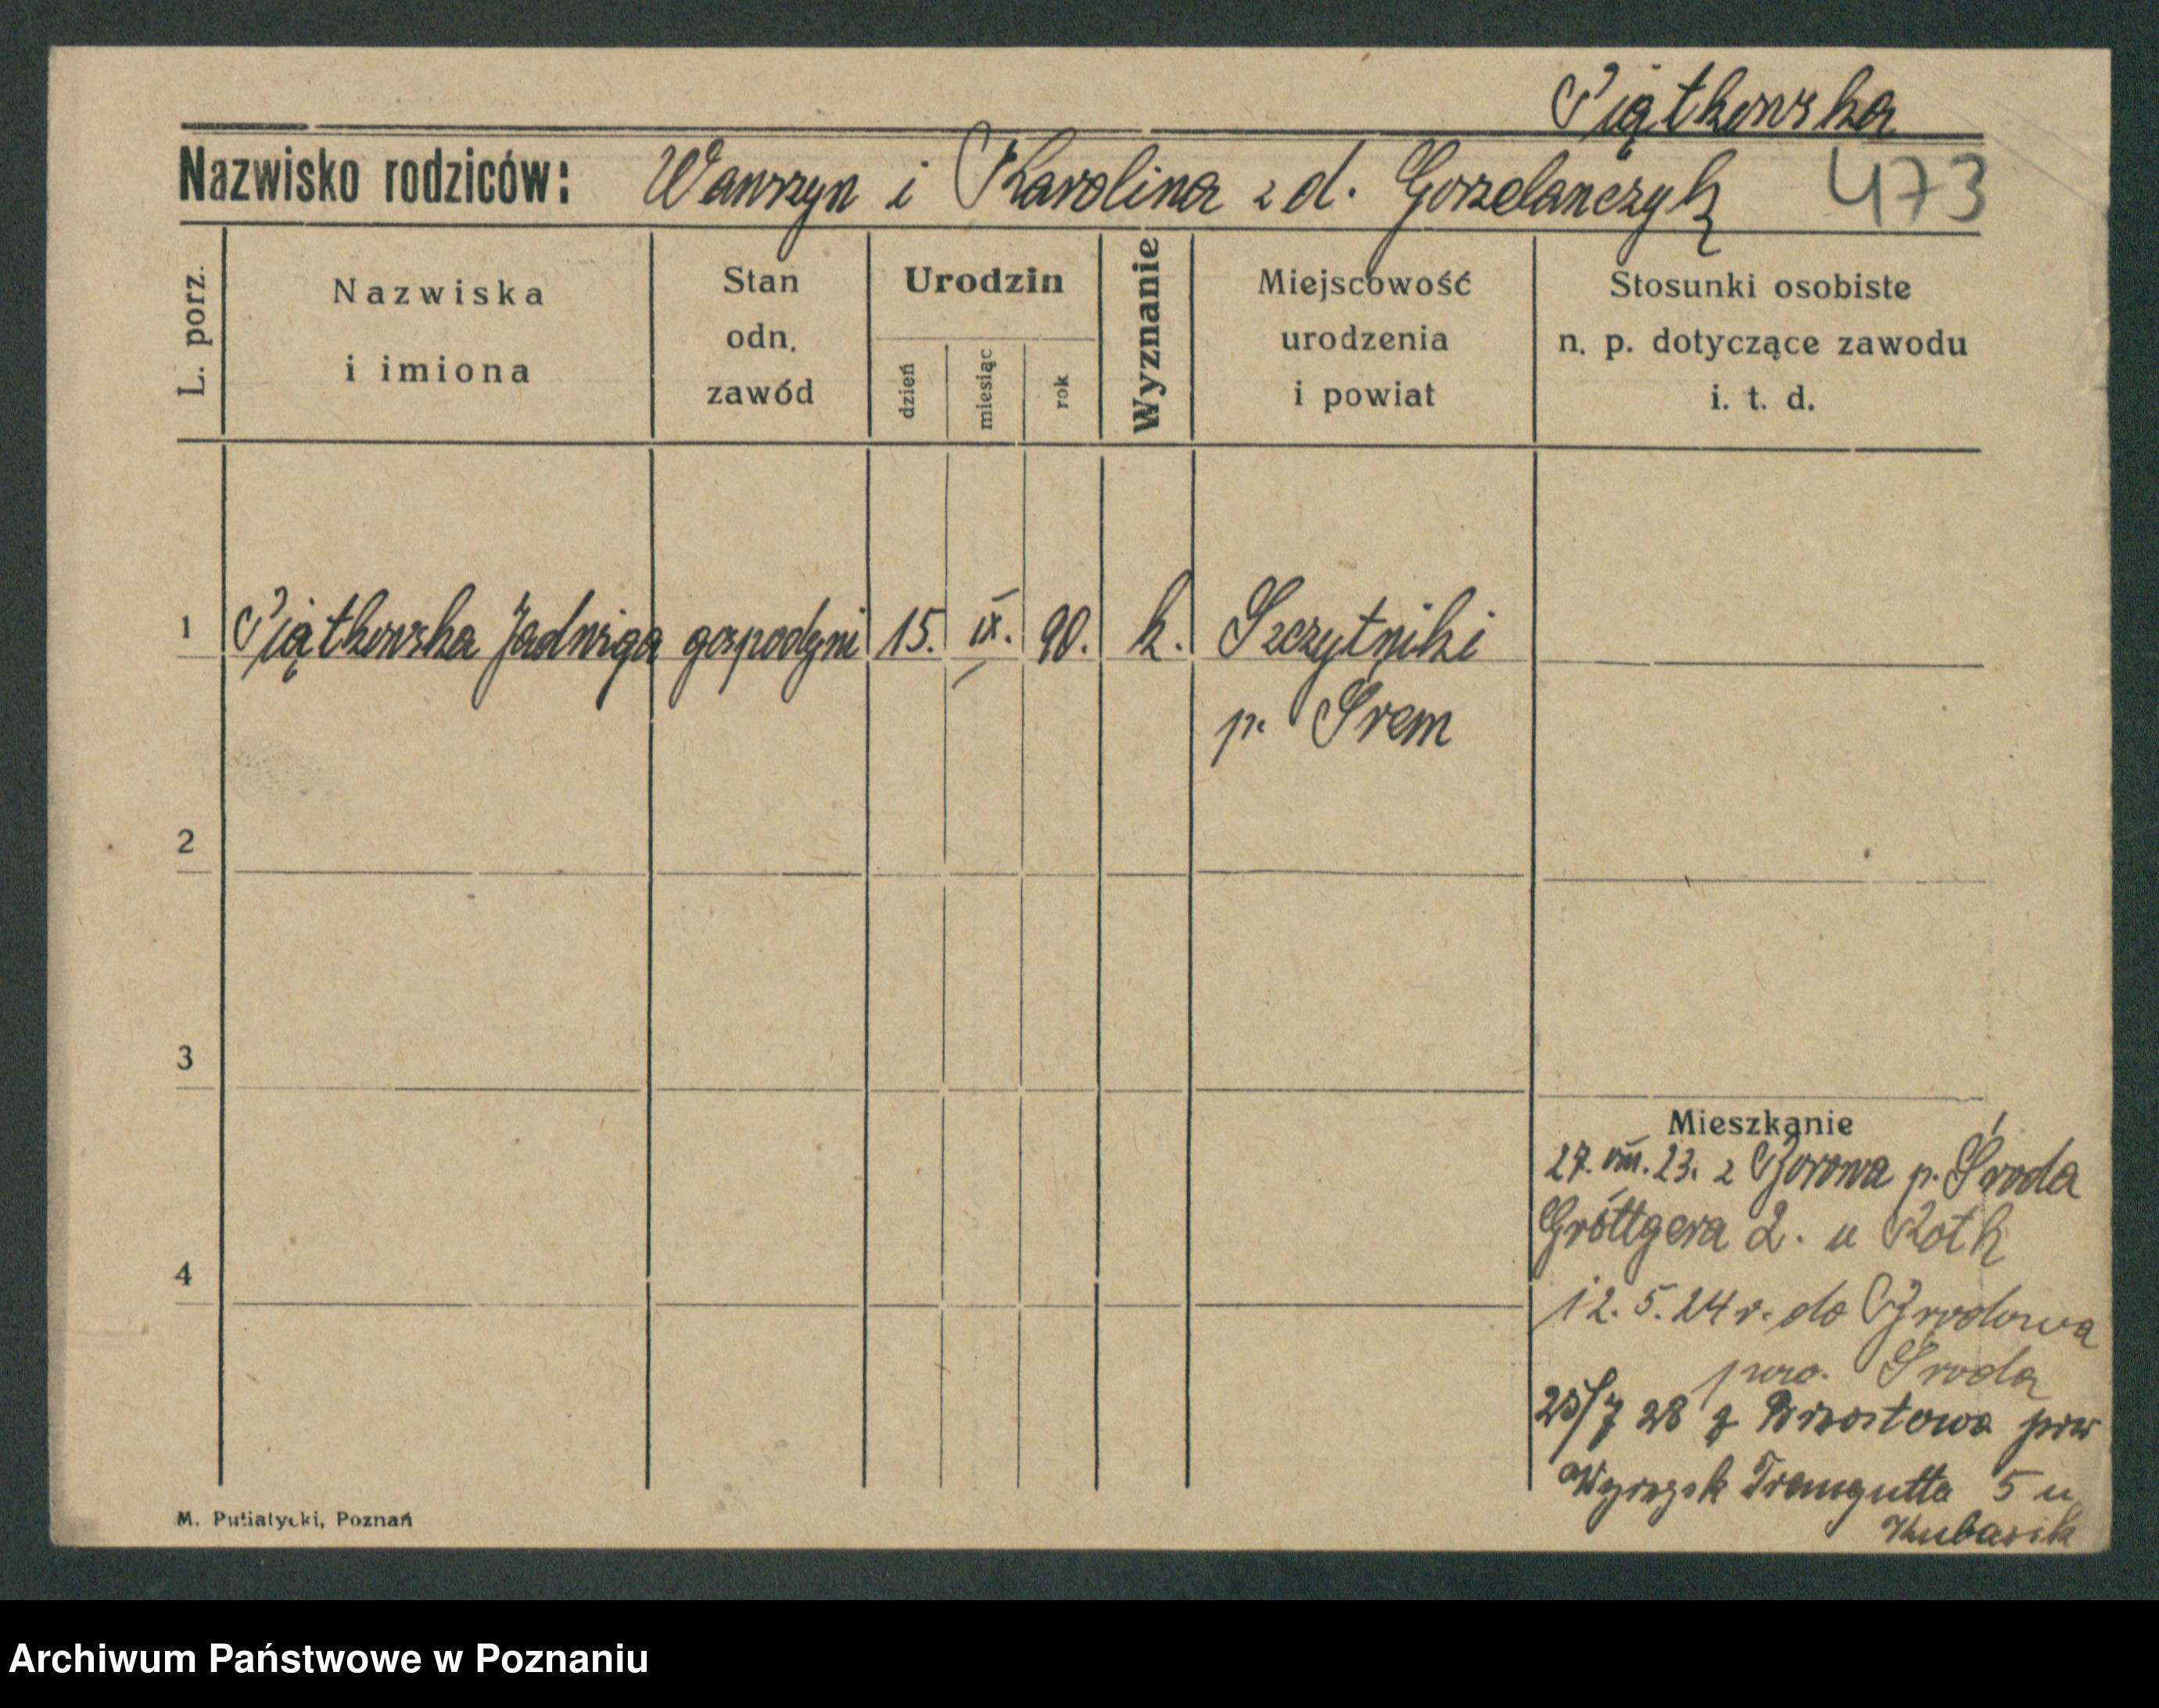 Piątkowska
Nazwisko rodziców: Wawrzyn i Karolina z d. Gorzelańczyk 473
L. porz.
Nazwiska
i imiona
Stan
odn.
zawód
Urodzin
dzień
miesiąc
rok
Wyznanie
Miejscowość
urodzenia
i powiat
Stosunki osobiste
n. p. dotyczące zawodu
i. t. d.
1 Piątkowska Jadwiga gospodyni 15. IX. 90. k. Szczytniki
p. Śrem
2
3
4
Mieszkanie
27. VIII. 23. z Borowa p. Środa
Gróttgera 2. u Roth
12. 5. 24 r. do Brodowa
pow. Środa
25/7 28 z Brzostowa pow
Wyrzysk Traugutta 5 u
Kubasik
M. Putiatycki, Poznań
Archiwum Państwowe w Poznaniu